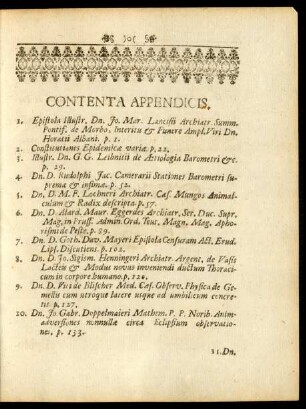 CONTENTA APPENDICIS.
1. Epistola Illustr. Dn. Jo. Mar. Lancisii Archiatr. Summ.
Pontif. de Morbo, Interitu & Funere Ampl. Viri Dn.
Horatii Albani. p. 1.
2. Constitutiones Epidemicæ variæ. p. 22.
3. Illustr. Dn. G. G. Leibnitii de Aetiologia Barometri &c.
p. 29.
4. Dn. D. Rudolphi Jac. Camerarii Stationes Barometri su-
prema & infimæ. p. 52.
5. Dn. D. M. F. Lochneri Archiatr. Cæs. Mungos Animal-
culum & Radix descripta. p. 57.
6. Dn. D. Alard. Maur. Eggerdes Archiatr. Ser. Duc. Supr.
Mag. in Pruss. Admin. Ord. Teut. Magn. Mag. Apho-
rismi de Peste. p. 89.
7. Dn. D. Goth. Dav. Mayeri Epistola Censuram Act. Erud.
Lips. Discutiens. p. 102.
8. Dn. D. Jo. Sigism. Henningeri Archiatr. Argent. de Vasis
Lacteis & Modus novus inveniendi ductum Thoraci-
cum in corpore humano. p. 120.
9. Dn. D. Vis de Blischer Med. Cæs. Observ. Physica de Ge-
mellis cum utroque latere usque ad umbilicum concre-
tis. p. 127.
10. Dn. Jo. Gabr. Doppelmaieri Mathem. P. P. Norib. Anim-
adversiones nonnullæ circa Eclipsium observatio-
nes. p. 133.
11. Dn.